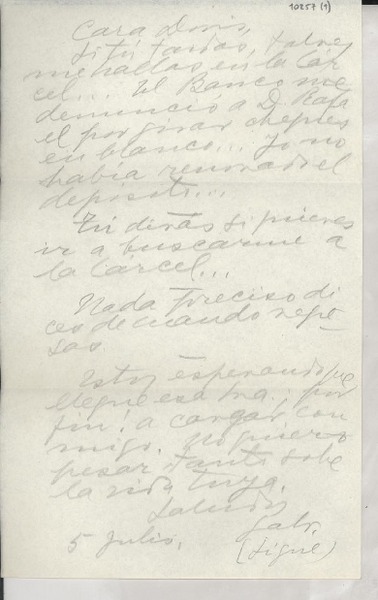 10257 (1)
Cara Doris,
Si tú tardas, tal vez
me hallas en la Cár
cel... El Banco me
denunció a D. Rafa
el por girar cheques
en blanco... Yo no
había renovado el
depósito...
Tú dirás si quieres
ir a buscarme a
la Cárcel...
Nada preciso di
ces de cuando regre-
sas.
Estoy esperando que
llegue esa tra. por
fin! a cargar con
migo. No quiero
pesar tanto sobre
la vida tuya.
Saludos
Gabr.
5 Julio.
(Sigue)